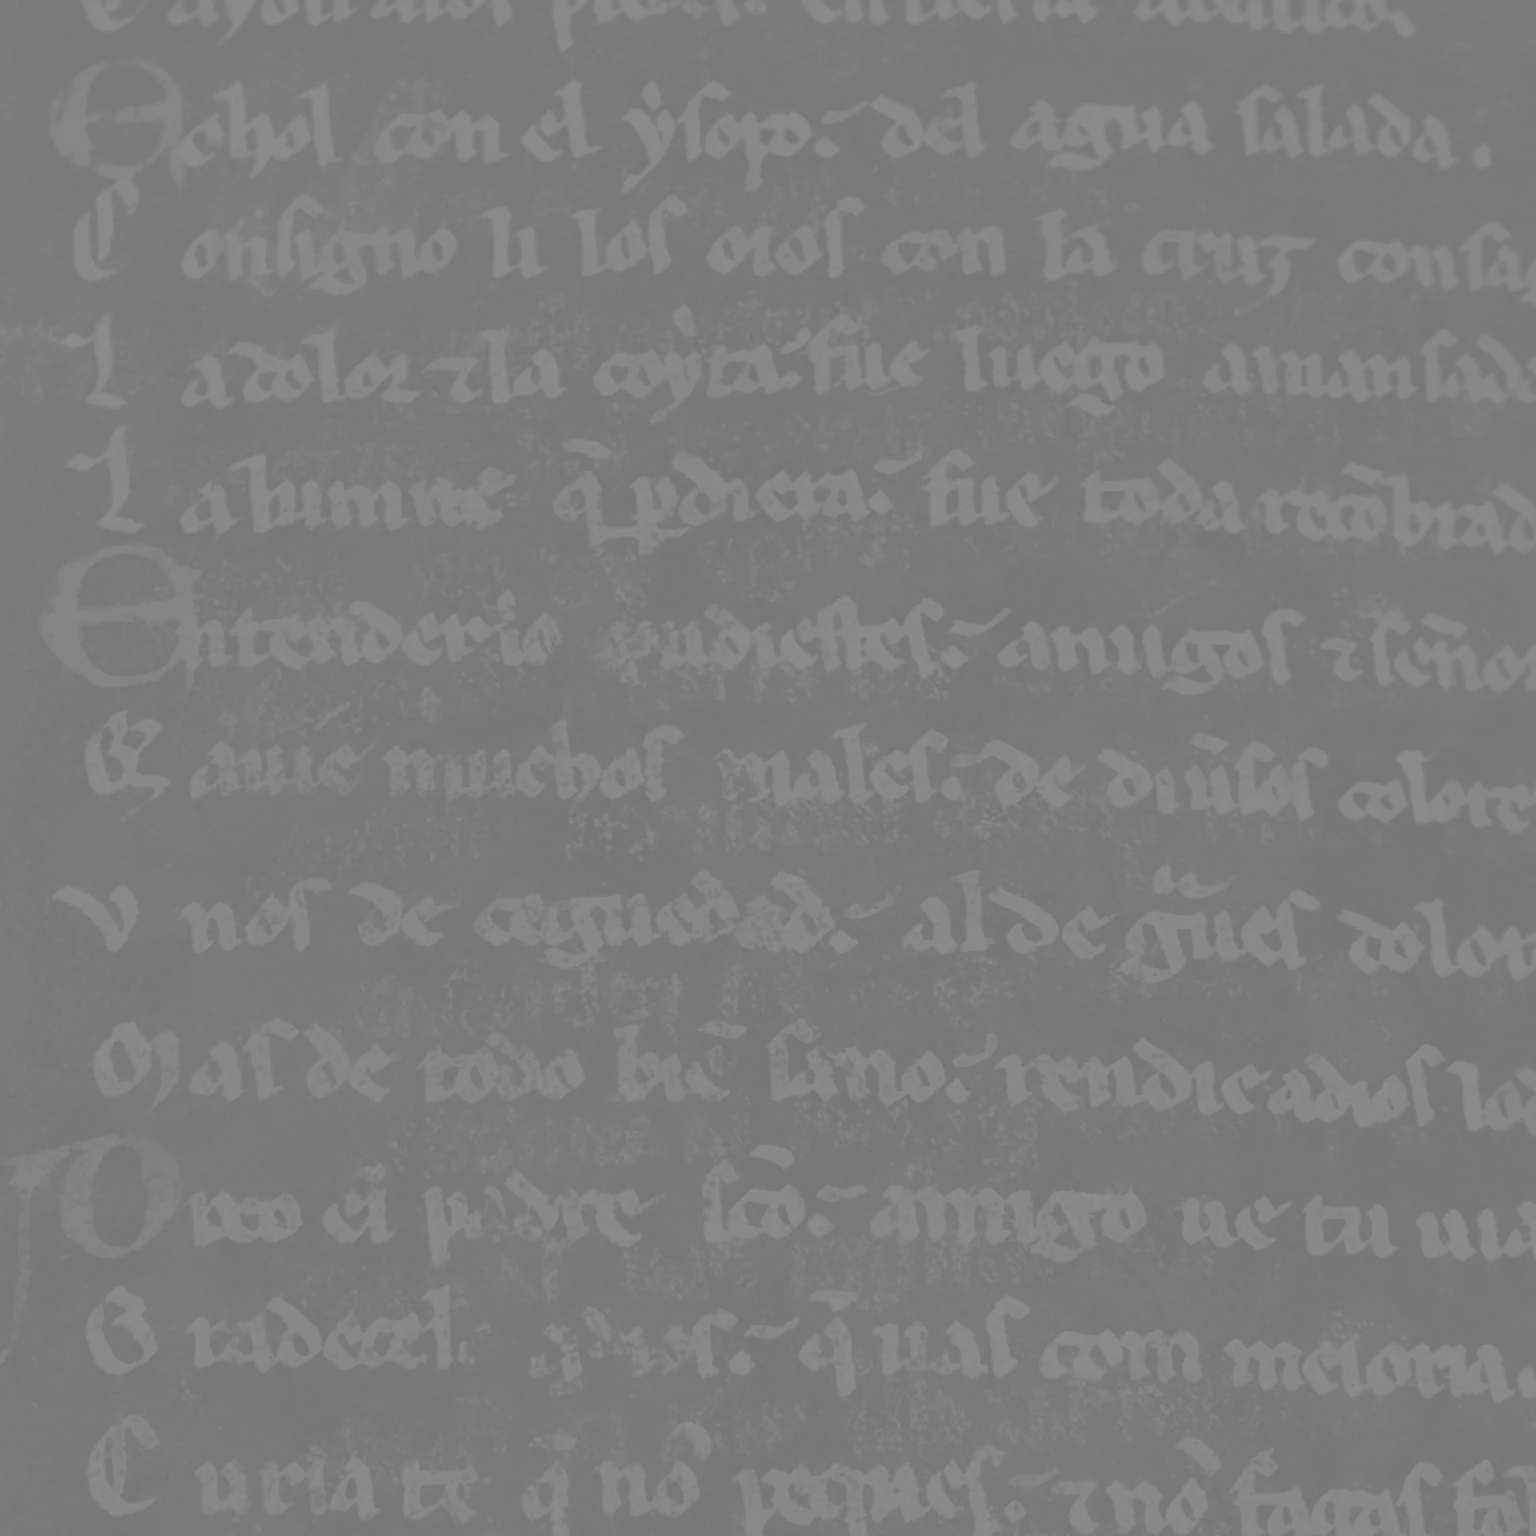 Cayoli alos piedes. en tierra abatido
Echol con el ẏsopo. del agua salada.
Consigno li los oios con la cruz consag
La dolor ⁊ la coẏta. fue luego amansada
La lumne q̄ ꝑdiera. fue toda recōbrad
Entender lo pudiestes. amigos ⁊ señor
Q̄ auie muchos males. de diũsos colore
Vnos de ceguedad. al de g̃ues dolor
Mas de todo biē sano. rendie adios lo
Dixo el padre sc̄o. amigo ue tu uia
Gradecel adios. q̄ uas com meioria.
Curia te q̄ no peques. ⁊ no fagas fo